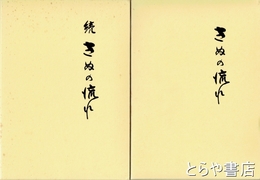 続 きぬの流れ
きぬの流れ
とらや書店